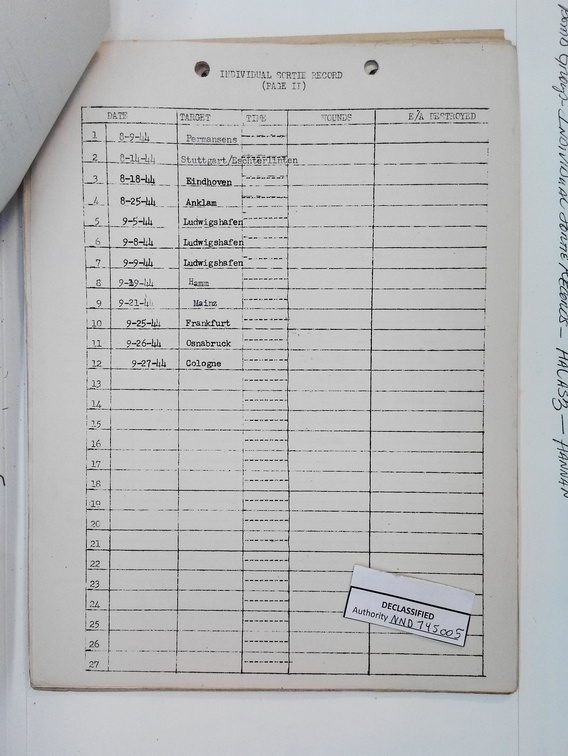 INDIVIDUAL SORTIE RECORD
(PAGE II)
DATE TARGET TIME WOUNDS E/A DESTROYED
1 8-9-44 Permansens
2 8-14-44 Stuttgart/Eschterlinten
3 8-18-44 Eindhoven
4 8-25-44 Anklam
5 9-5-44 Ludwigshafen
6 9-8-44 Ludwigshafen
7 9-9-44 Ludwigshafen
8 9-19-44 Hamm
9 9-21-44 Mainz
10 9-25-44 Frankfurt
11 9-26-44 Osnabruck
12 9-27-44 Cologne
13
14
15
16
17
18
19
20
21
22
23
24
25
26
27
DECLASSIFIED
Authority NND 745005
Bomb Group - Individual Sortie Records - HALASZ - HANNAN